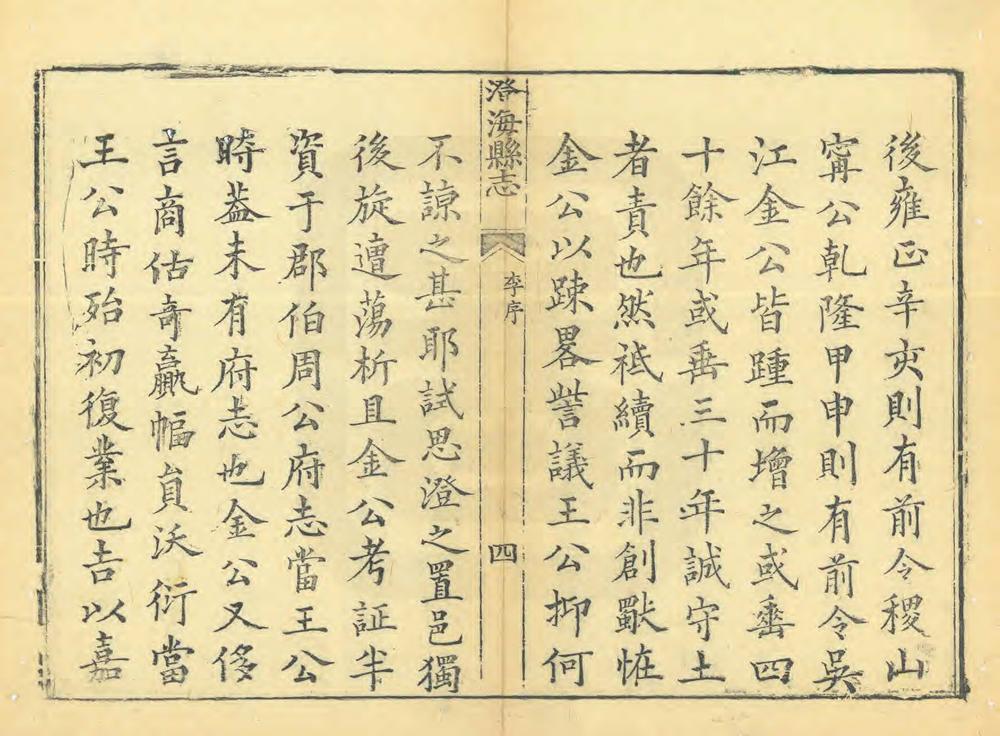 後雍正辛亥則有前令稷山
甯公乾隆甲申則有前令吳
江金公皆踵而增之或垂四
十餘年或垂三十年誠守土
者責也然祗續而非創獸恠
金公以踈畧訾議王公抑何
澄海縣志
李序
四
不諒之甚耶試思澄之置邑獨
後旋遭蕩析且金公考証半
資于郡伯周公府志當王公
時葢未有府志也金公又侈
言商估奇贏幅員沃衍當
王公時殆初復業也吉以嘉